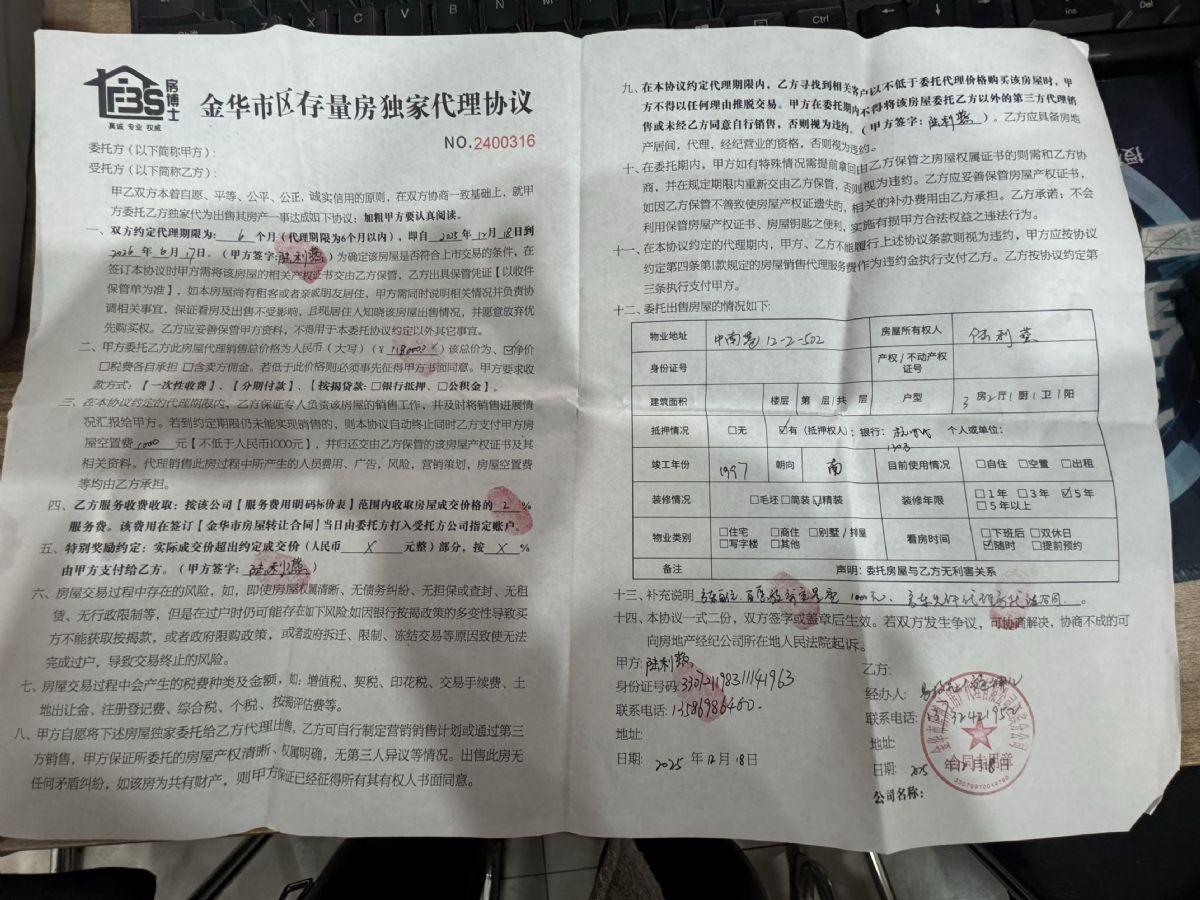 FBS
房博士
真诚 专业 权威
金华市区存量房独家代理协议
NO.2400316
委托方（以下简称甲方）:
受托方（以下简称乙方）:
甲乙双方本着自愿、平等、公平、公正、诚实信用的原则，在双方协商一致基础上，就甲
方委托乙方独家代为出售其房产一事达成如下协议；加粗甲方要认真阅读。
一、双方约定代理期限为: 6 个月（代理期限为6个月以内），即自 2025 年 12 月 18 日到
2026 年 6 月 17 日。（甲方签字: ）为确定该房屋是否符合上市交易的条件，在
签订本协议时甲方需将该房屋的相关产权证书交由乙方保管，乙方出具保管凭证【以收件
保管单为准】，如本房屋尚有租客或者亲戚朋友居住，甲方需同时说明相关情况并负责协
调相关事宜，保证看房及出售不受影响，且现居住人知晓该房屋出售情况，并愿意放弃优
先购买权。乙方应妥善保管甲方资料，不得用于本委托协议约定以外其它事宜。
二、甲方委托乙方此房屋代理销售总价格为人民币（大写）（¥ ）该总价为、☑净价
□税费各自承担 □含卖方佣金。若低于此价格则必须事先征得甲方书面同意。甲方要求收
款方式：【一次性收费】、【分期付款】、【按揭贷款: □银行抵押、□公积金】。
三、在本协议约定的代理期限内，乙方保证专人负责该房屋的销售工作，并及时将销售进展情
况汇报给甲方。若到约定期限仍未能实现销售的，则本协议自动终止同时乙方支付甲方房
屋空置费 1000 元【不低于人民币1000元】，并归还交由乙方保管的该房屋产权证书及其
相关资料。代理销售此房过程中所产生的人员费用、广告，风险，营销策划，房屋空置费
等均由乙方承担。
四、乙方服务收费收取：按该公司【服务费用明码标价表】范围内收取房屋成交价格的 2 %
服务费。该费用在签订【金华市房屋转让合同】当日由委托方打入受托方公司指定账户。
五、特别奖励约定：实际成交价超出约定成交价（人民币 X 元整）部分，按 X %
由甲方支付给乙方。（甲方签字: ）
六、房屋交易过程中存在的风险，如，即使房屋权属清晰、无债务纠纷、无担保或查封、无租
赁、无行政限制等，但是在过户时仍可能存在如下风险:如因银行按揭政策的多变性导致买
方不能获取按揭款，或者政府限购政策，或者政府拆迁、限制、冻结交易等原因致使无法
完成过户，导致交易终止的风险。
七、房屋交易过程中会产生的税费种类及金额，如；增值税、契税、印花税、交易手续费、土
地出让金、注册登记费、综合税、个税、按揭评估费等。
八、甲方自愿将下述房屋独家委托给乙方代理出售，乙方可自行制定营销销售计划或通过第三
方销售，甲方保证所委托的房屋产权清晰、权属明确，无第三人异议等情况。出售此房无
任何矛盾纠纷，如该房为共有财产，则甲方保证已经征得所有其有权人书面同意。
九、在本协议约定代理期限内，乙方寻找到相关客户以不低于委托代理价格购买该房屋时，甲
方不得以任何理由推脱交易。甲方在委托期内不得将该房屋委托乙方以外的第三方代理销
售或未经乙方同意自行销售，否则视为违约。（甲方签字: ）。乙方应具备房地
产居间，代理，经纪营业的资格，否则视为违约。
十、在委托期内，甲方如有特殊情况需提前拿回由乙方保管之房屋权属证书的则需和乙方协
商，并在规定期限内重新交由乙方保管，否则视为违约。乙方应妥善保管房屋产权证书，
如因乙方保管不善致使房屋产权证遗失的，相关的补办费用由乙方承担。乙方承诺：不会
利用保管房屋产权证书、房屋钥匙之便利，实施有损甲方合法权益之违法行为。
十一、在本协议约定的代理期内，甲方、乙方不能履行上述协议条款则视为违约，甲方应按协议
约定第四条第1款规定的房屋销售代理服务费作为违约金执行支付乙方。乙方按协议约定第
三条执行支付甲方。
十二、委托出售房屋的情况如下:
物业地址 12-2-502 房屋所有权人
身份证号 产权/不动产权证号
建筑面积 楼层 第 层/共 层 户型 3 房 2 厅 1 厨 1 卫 1 阳
抵押情况 □无 ☑有（抵押权人）；银行: 个人或单位:
竣工年份 1997 朝向 南 目前使用情况 □自住 □空置 □出租
装修情况 □毛坯 □简装 ☑精装 装修年限 □1年 □3年 ☑5年 □5年以上
物业类别 □住宅 □商住 □别墅/排屋 □写字楼 □其他 看房时间 □下班后 □双休日 ☑随时 □提前预约
备注 声明：委托房屋与乙方无利害关系
十三、补充说明 1000元、
十四、本协议一式二份，双方签字或盖章后生效。若双方发生争议，可协商解决，协商不成的可
向房地产经纪公司所在地人民法院起诉。
甲方:
身份证号码: 330121198311141963
联系电话: 13586986460
地址:
日期: 2025 年 12 月 18 日
乙方:
经办人:
联系电话:
地址:
日期: 2025 年 12 月 18 日
公司名称: